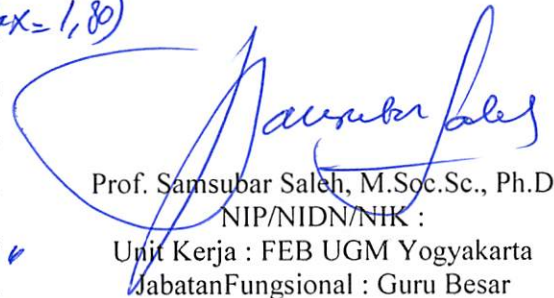 x= 1,80)
Samsubar Saleh
Prof. Samsubar Saleh, M.Soc.Sc., Ph.D
NIP/NIDN/NIK :
Unit Kerja : FEB UGM Yogyakarta
JabatanFungsional : Guru Besar